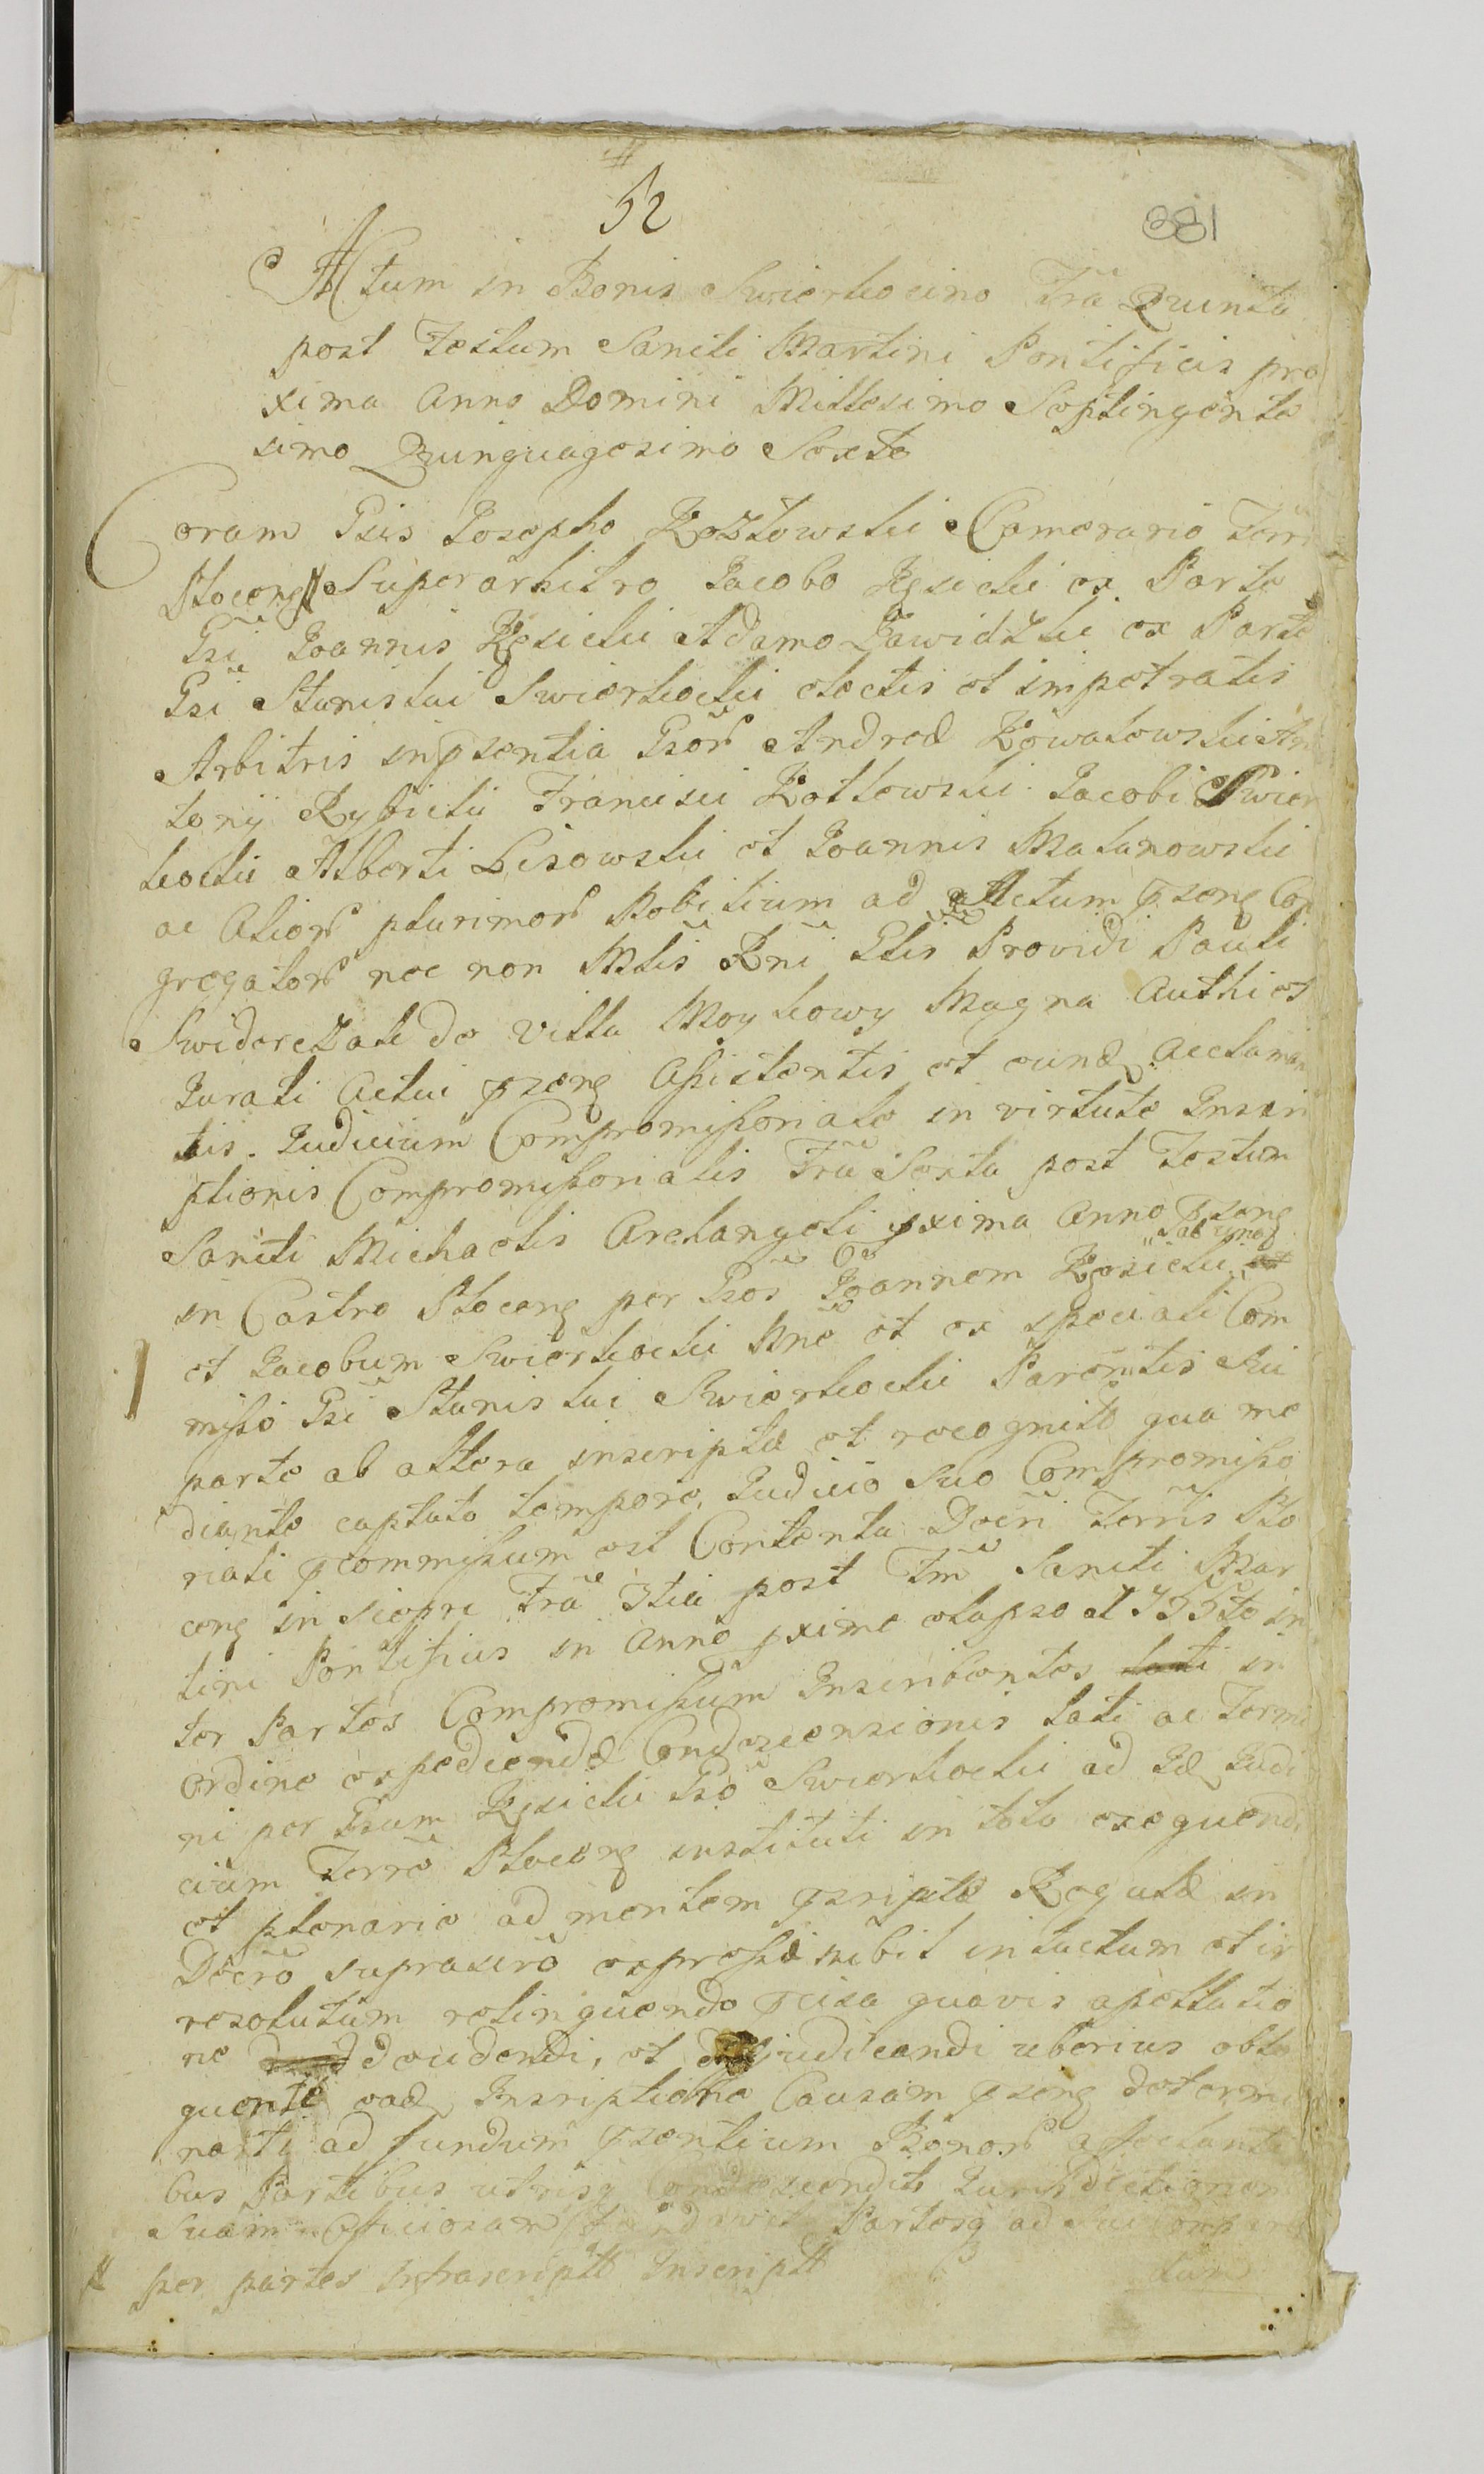 52
381
Actum in Bonis Swierkocino Fra Quinta
post Festum Sancti Martini Pontificis pro
xima Anno Domini Millesimo Septingente
simo Quinquagesimo Sexto
Coram Gsis Josepho Kozłowski Camerario Terr
Plocens Superarbitro Jacobo Kęsicki ex Parte
Gsi Joannis Kęsicki Adamo Zawidzki ex Parte
Gsi Stanislai Swierkocki electis et impetratis
Arbitris in psentia Gsor Andreæ Kowalowski An
tonij Rypicki Francisci Kotłowski Jacobi Swier
kocki Alberti Lisowski et Joannis Makanowski
ac Alior plurimor Nobilium ad Actum psens Con
gregator nec non Mlis Rni Glis Providi Pauli
Swiderczak de Villa Moykowy Magna Authics
Jurati Actui psens Assistentis et eund Acclaman
tis. Judicium Compromissoriale in virtute Inscri
ptionis Compromissorialis Fra Sexta post Festum
Sancti Michaelis Archangeli pxima Anno psens
in Castro Plocens per Gsos Joannem Kęsicki
et Jacobum Swierkocki Nne et ex speciali Com
misso Gsi Stanislai Swierkocki Parentis Sui
parte ab altera inscriptæ et recognitæ qua me
diante captato tempore, Judicio suo Compromisso
riali pcommissum est Contenta Docri Terris Plo
cens in Sieprc Fra 3tia post Fm Sancti Mar
tini Pontificis in Anno pxime elapso 1755to in
ter Partes Compromissum Inscribentes in
ordine expediendæ Condescensionis lati ac Termi
ni per Gsum Kęsicki Gso Swierkocki ad Id Judi
cium Terre Plocens instituti in toto exequendi
et plenario ad mentem pscriptæ Regulæ in
Docro suprascro expressæ nihil intactum et ir
resolutum relinquendo pcisa quavis apellatio
ne decidendi, et dijudicandi uberius obto
quente ead Inscriptione Causam psens determi
nari ad fundum psentium Bonor affectanti
bus Partibus utrisq Condescendit Jurisdictionem
Suam Officiosam Partesq ad
per partes infrascriptt Inscriptt
dum